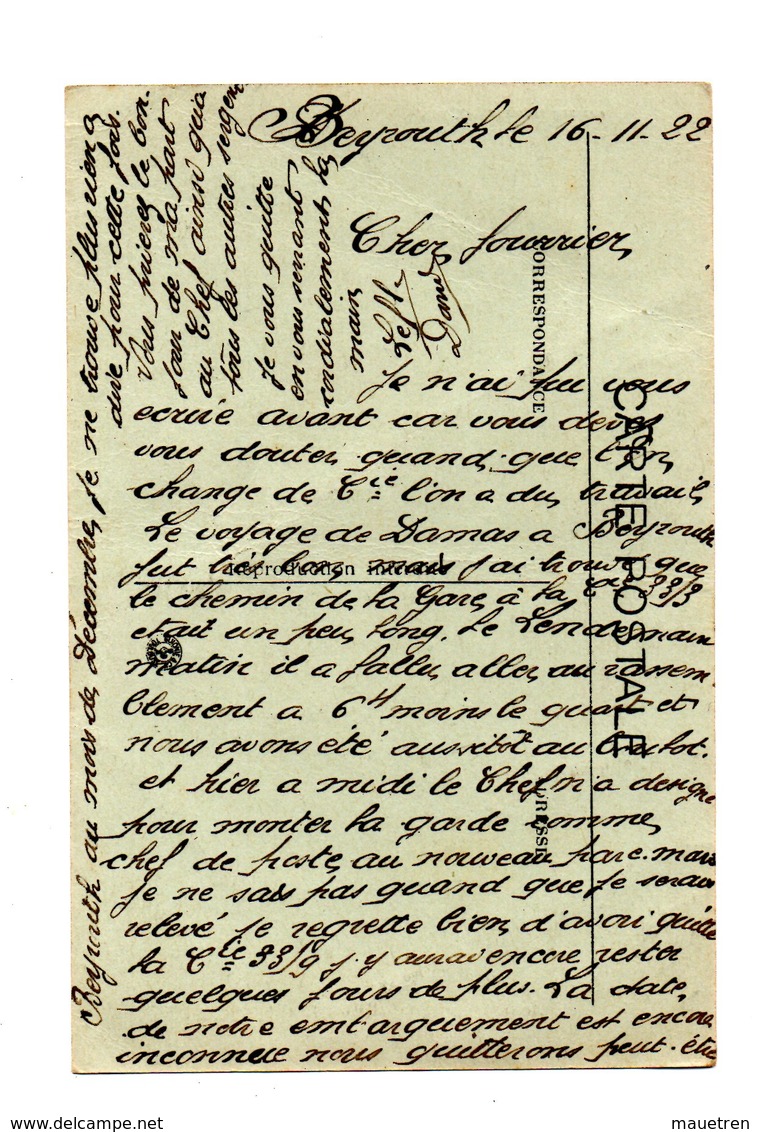 Beyrouth le 16-11-22
Cher fourrier,
Je n'ai pu vous
ecrire avant car vous devez
vous douter quand que l'on
change de Cie l'on a du travail,
Le voyage de Damas a Beyrouth
fut très bon, mais j'ai trouvé que
le chemin de la Gare, à la Cie 33/3
etait un peu long. Le Lendemain
matin il a fallu aller au rassem
blement a 6h moins le quart et
nous avons été aussitôt au boulot.
et hier a midi le Chef m'a designé
pour monter la garde comme
chef de poste, au nouveau parc. mais
je ne sais pas quand que je serais
relevé je regrette bien d'avoir quitté
la Cie 33/9 j'y aurais encore rester
quelques jours de plus. La date,
de notre embarquement est encore
inconnue nous quitterons peut-être
Beyrouth au mois de, Décembre, je ne trouve plus rien a
dire pour cette fois.
Vous prierez le bon-
jour de ma part
au Chef ainsi qu'a
tous les autres sergen
Je vous quitte
en vous serrant
cordialement la
main
CARTE POSTALE
CORRESPONDANCE
ADRESSE
Reproduction interdite
delcampe.net
mauetren